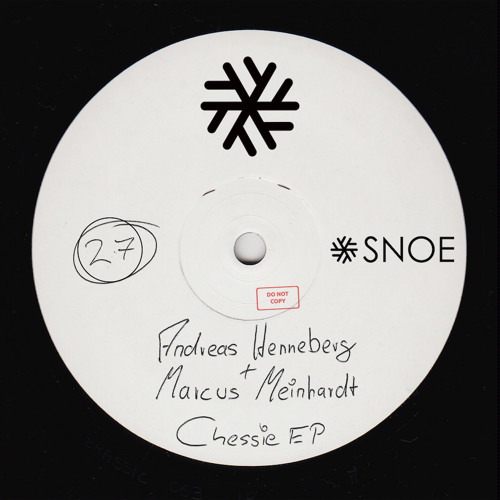 27
SNOE
DO NOT
COPY
Andreas Henneberg
+
Marcus Meinhardt
Chessie EP